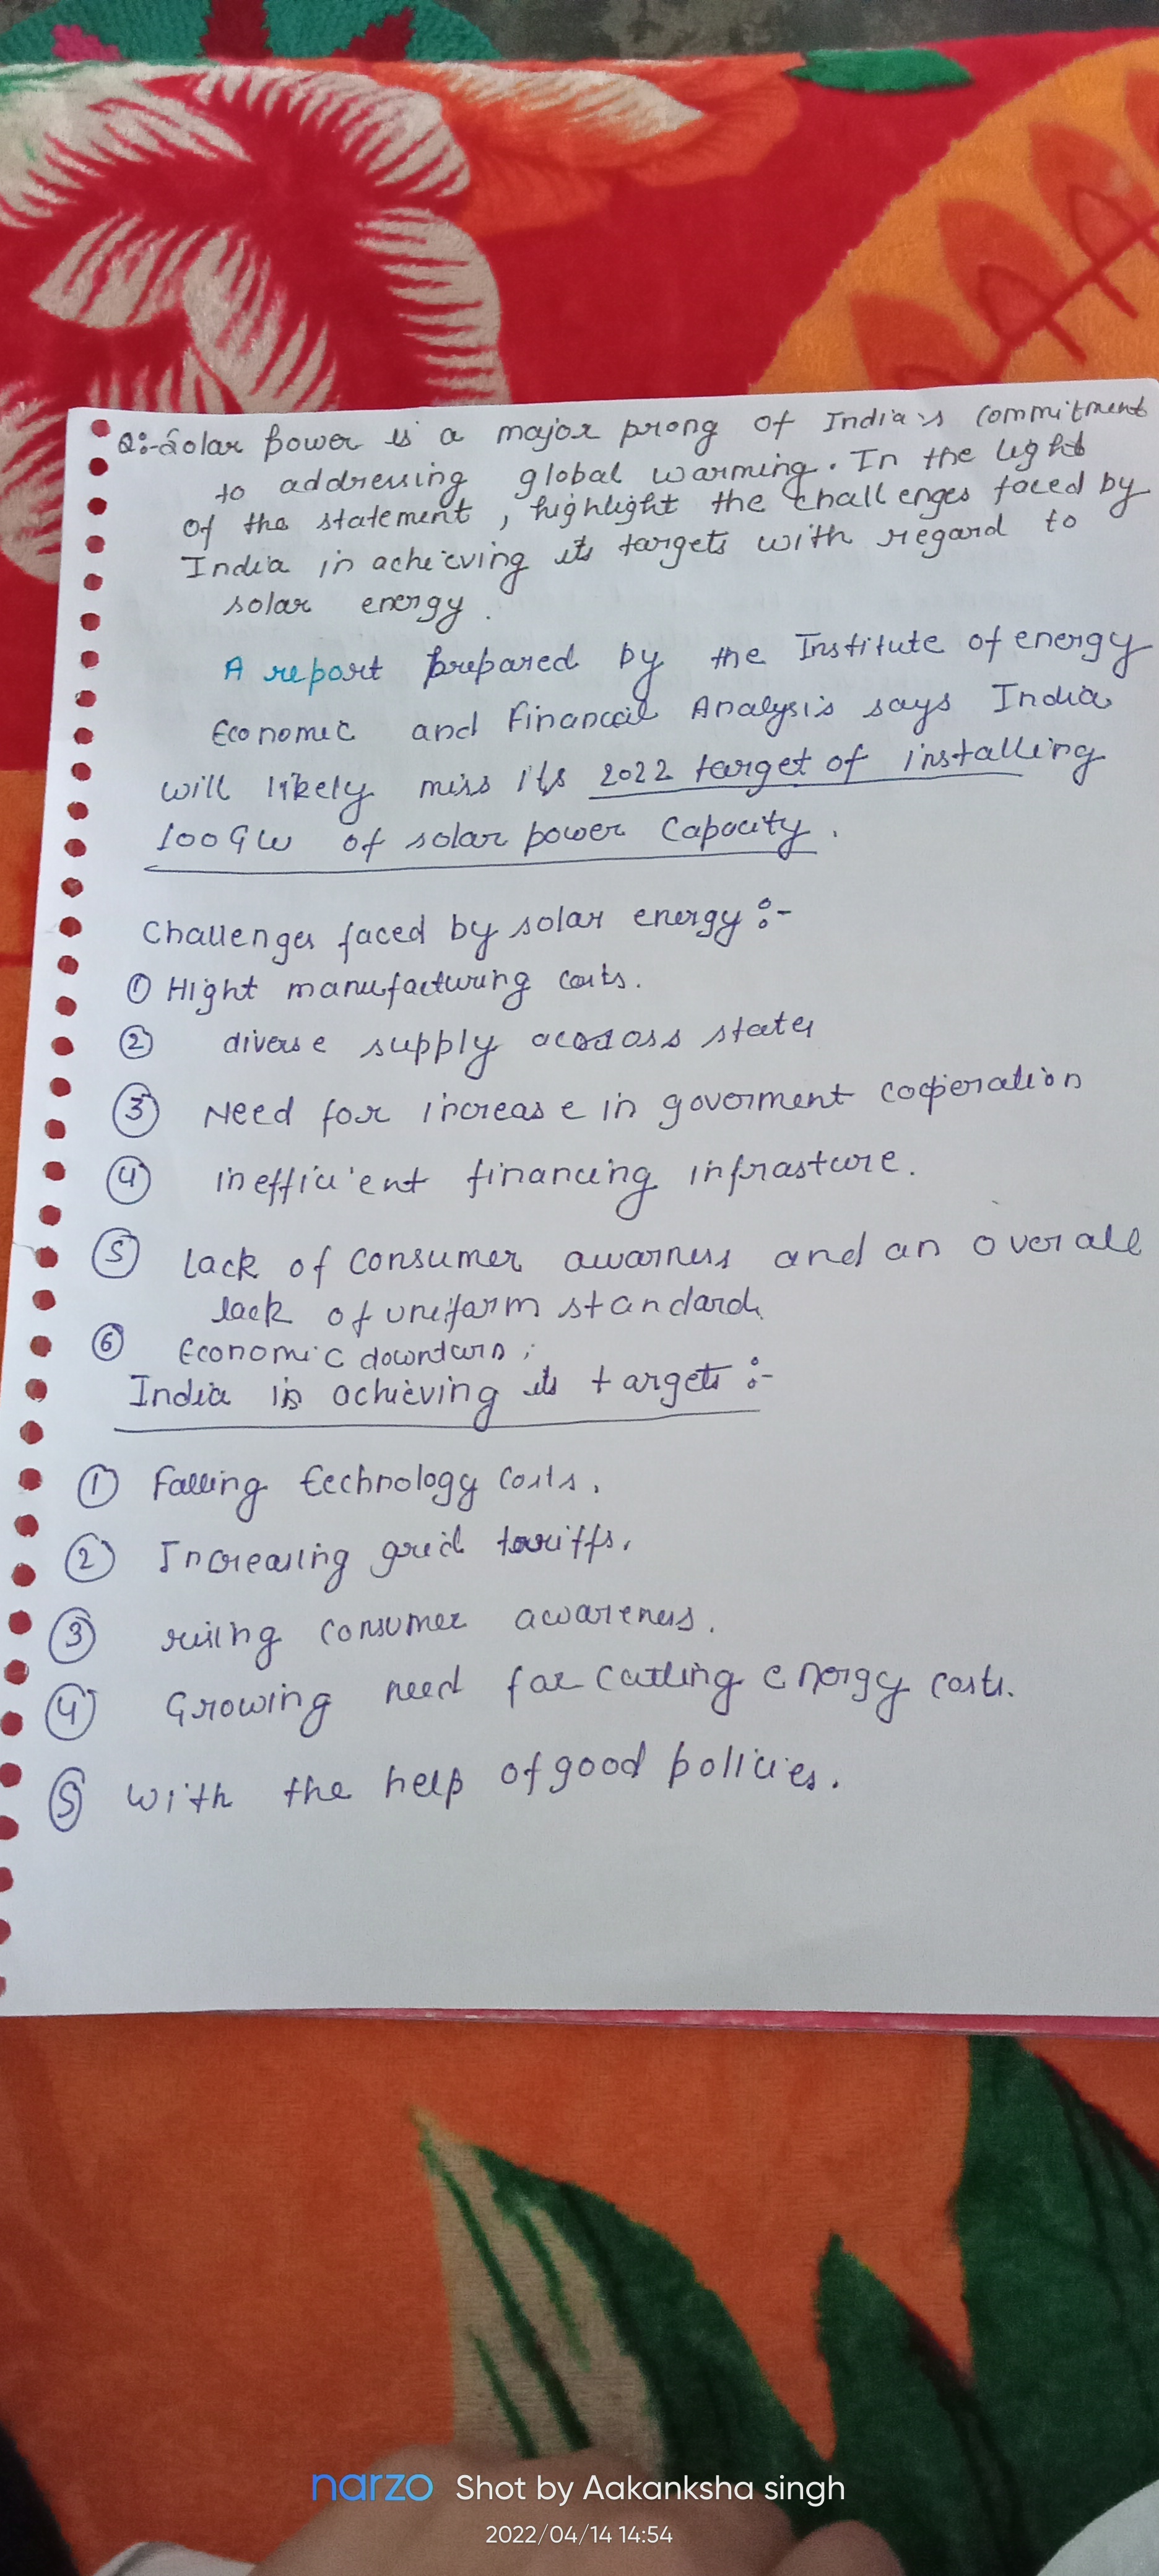 Q:- Solar power is a major prong of India's commitment
to addressing global warming. In the light
of the statement, highlight the challenges faced by
India in achieving its targets with regard to
solar energy.
A report prepared by the Institute of energy
Economic and Financial Analysis says India
will likely miss its 2022 target of installing
100GW of solar power capacity.
Challenges faced by solar energy :-
① Hight manufacturing costs.
② diverse supply across states
③ Need for increase in goverment cooperation
④ inefficient financing infrasture.
⑤ lack of consumer awarness and an overall
lack of uniform standard
⑥ Economic downturn ;
India in achieving its targets :-
① Falling technology costs.
② Increasing grid tariffs.
③ rising consumer awareness.
④ Growing need for cutting energy costs.
⑤ with the help of good policies.
narzo Shot by Aakanksha singh
2022/04/14 14:54